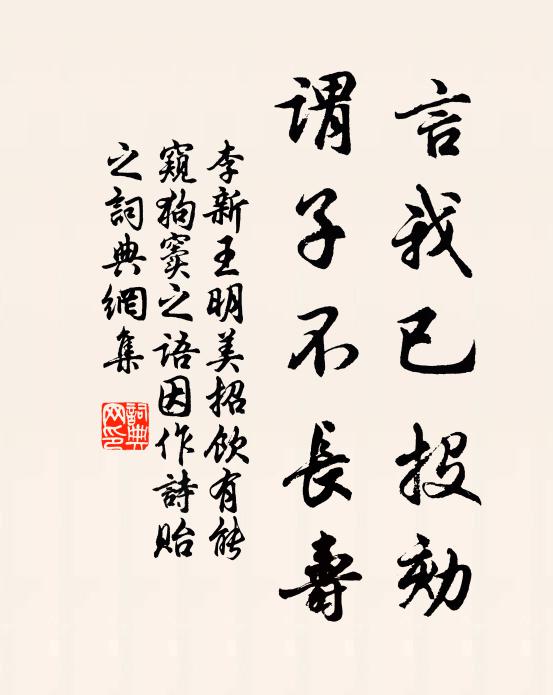 言我已投劾
謂子不長壽
李新王明美招飲有能
窺狗竇之語因作詩貽
之詞典網集
詞典
网印